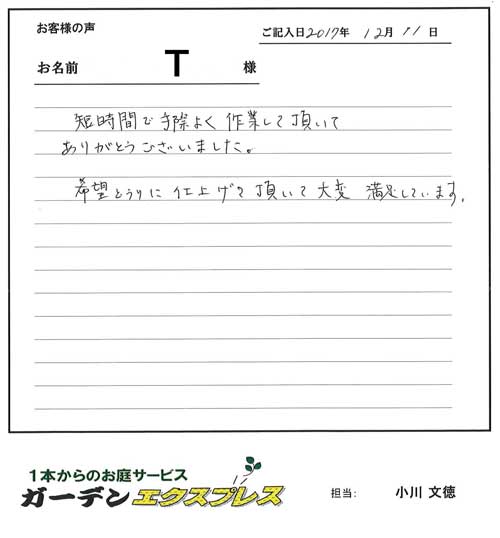 お客様の声
ご記入日2017年 12月 11日
お名前 T 様
短時間で手際よく作業して頂いて
ありがとうございました。
希望どうりに仕上げて頂いて大変満足しています。
1本からのお庭サービス
ガーデンエクスプレス
担当: 小川 文徳